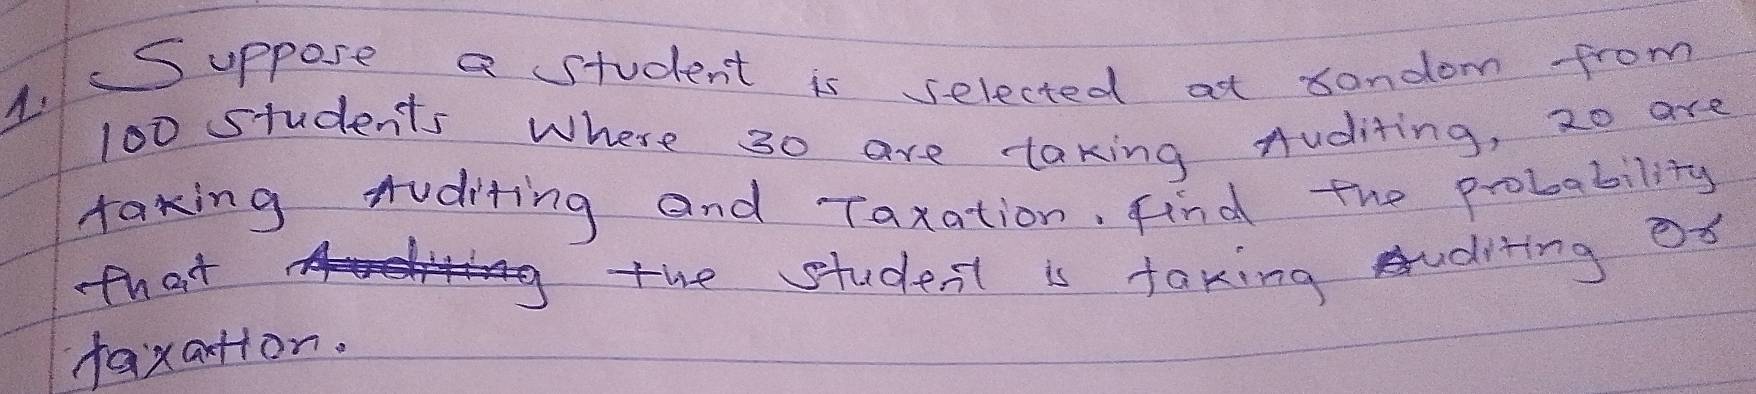 1. Suppose a student is selected at random from
100 students where 30 are taking Auditing, 20 are
taking Auditing and Taxation. find the probability
that Auditing the student is taking Auditing or
taxation.